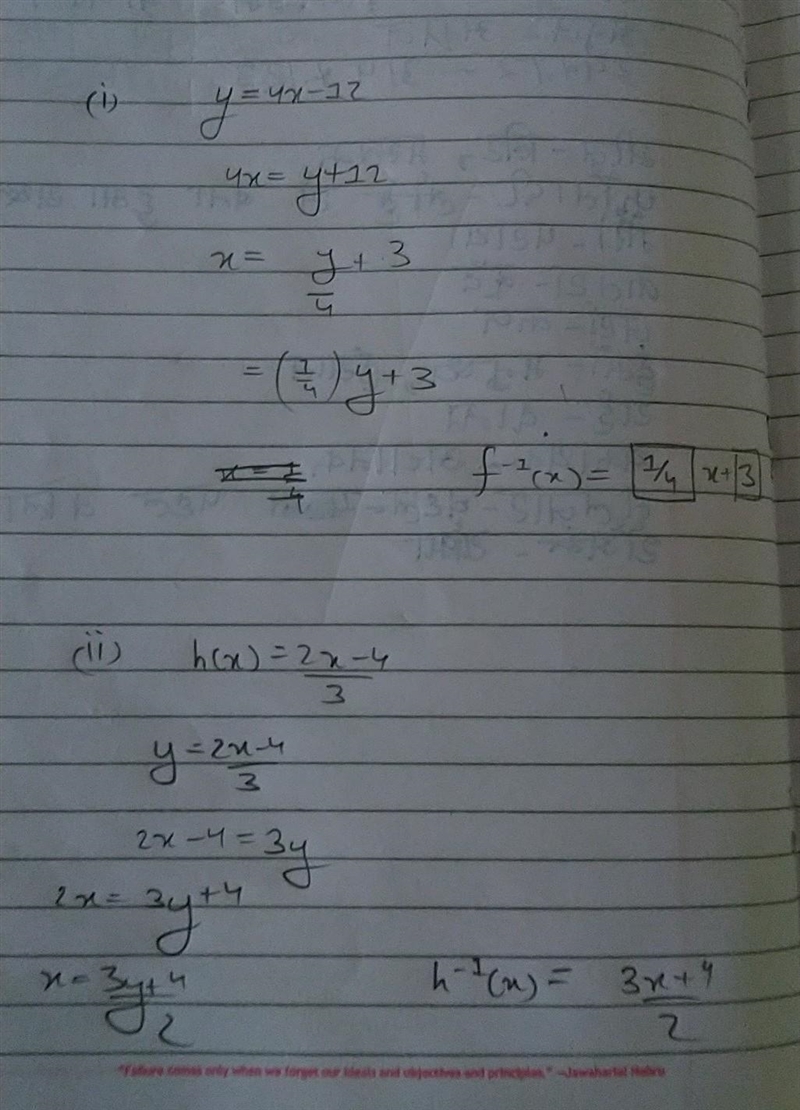 (i) y = 4x - 12
4x = y + 12
x = y/4 + 3
= (1/4) y + 3
f⁻¹(x) = 1/4 x + 3
(ii) h(x) = 2x - 4/3
y = 2x - 4/3
2x - 4 = 3y
2x = 3y + 4
x = 3y + 4/2 h⁻¹(x) = 3x + 4/2
"Failure comes only when we forget our ideals and objectives and principles." –Jawaharlal Nehru